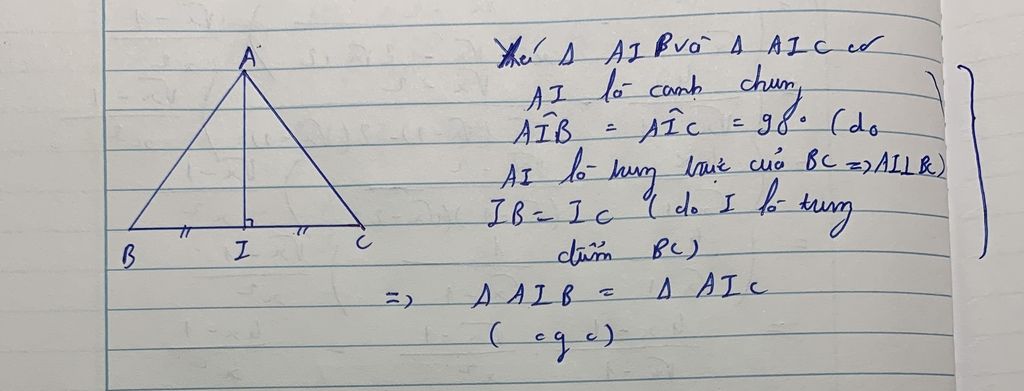 A
B
I
C
Xét Δ AIB và Δ AIC có
AI là cạnh chung
AÎB = AÎC = 90° (do
AI là trung trực của BC => AI⊥BC)
IB = IC (do I là trung
điểm BC)
=> Δ AIB = Δ AIC
(cgc)